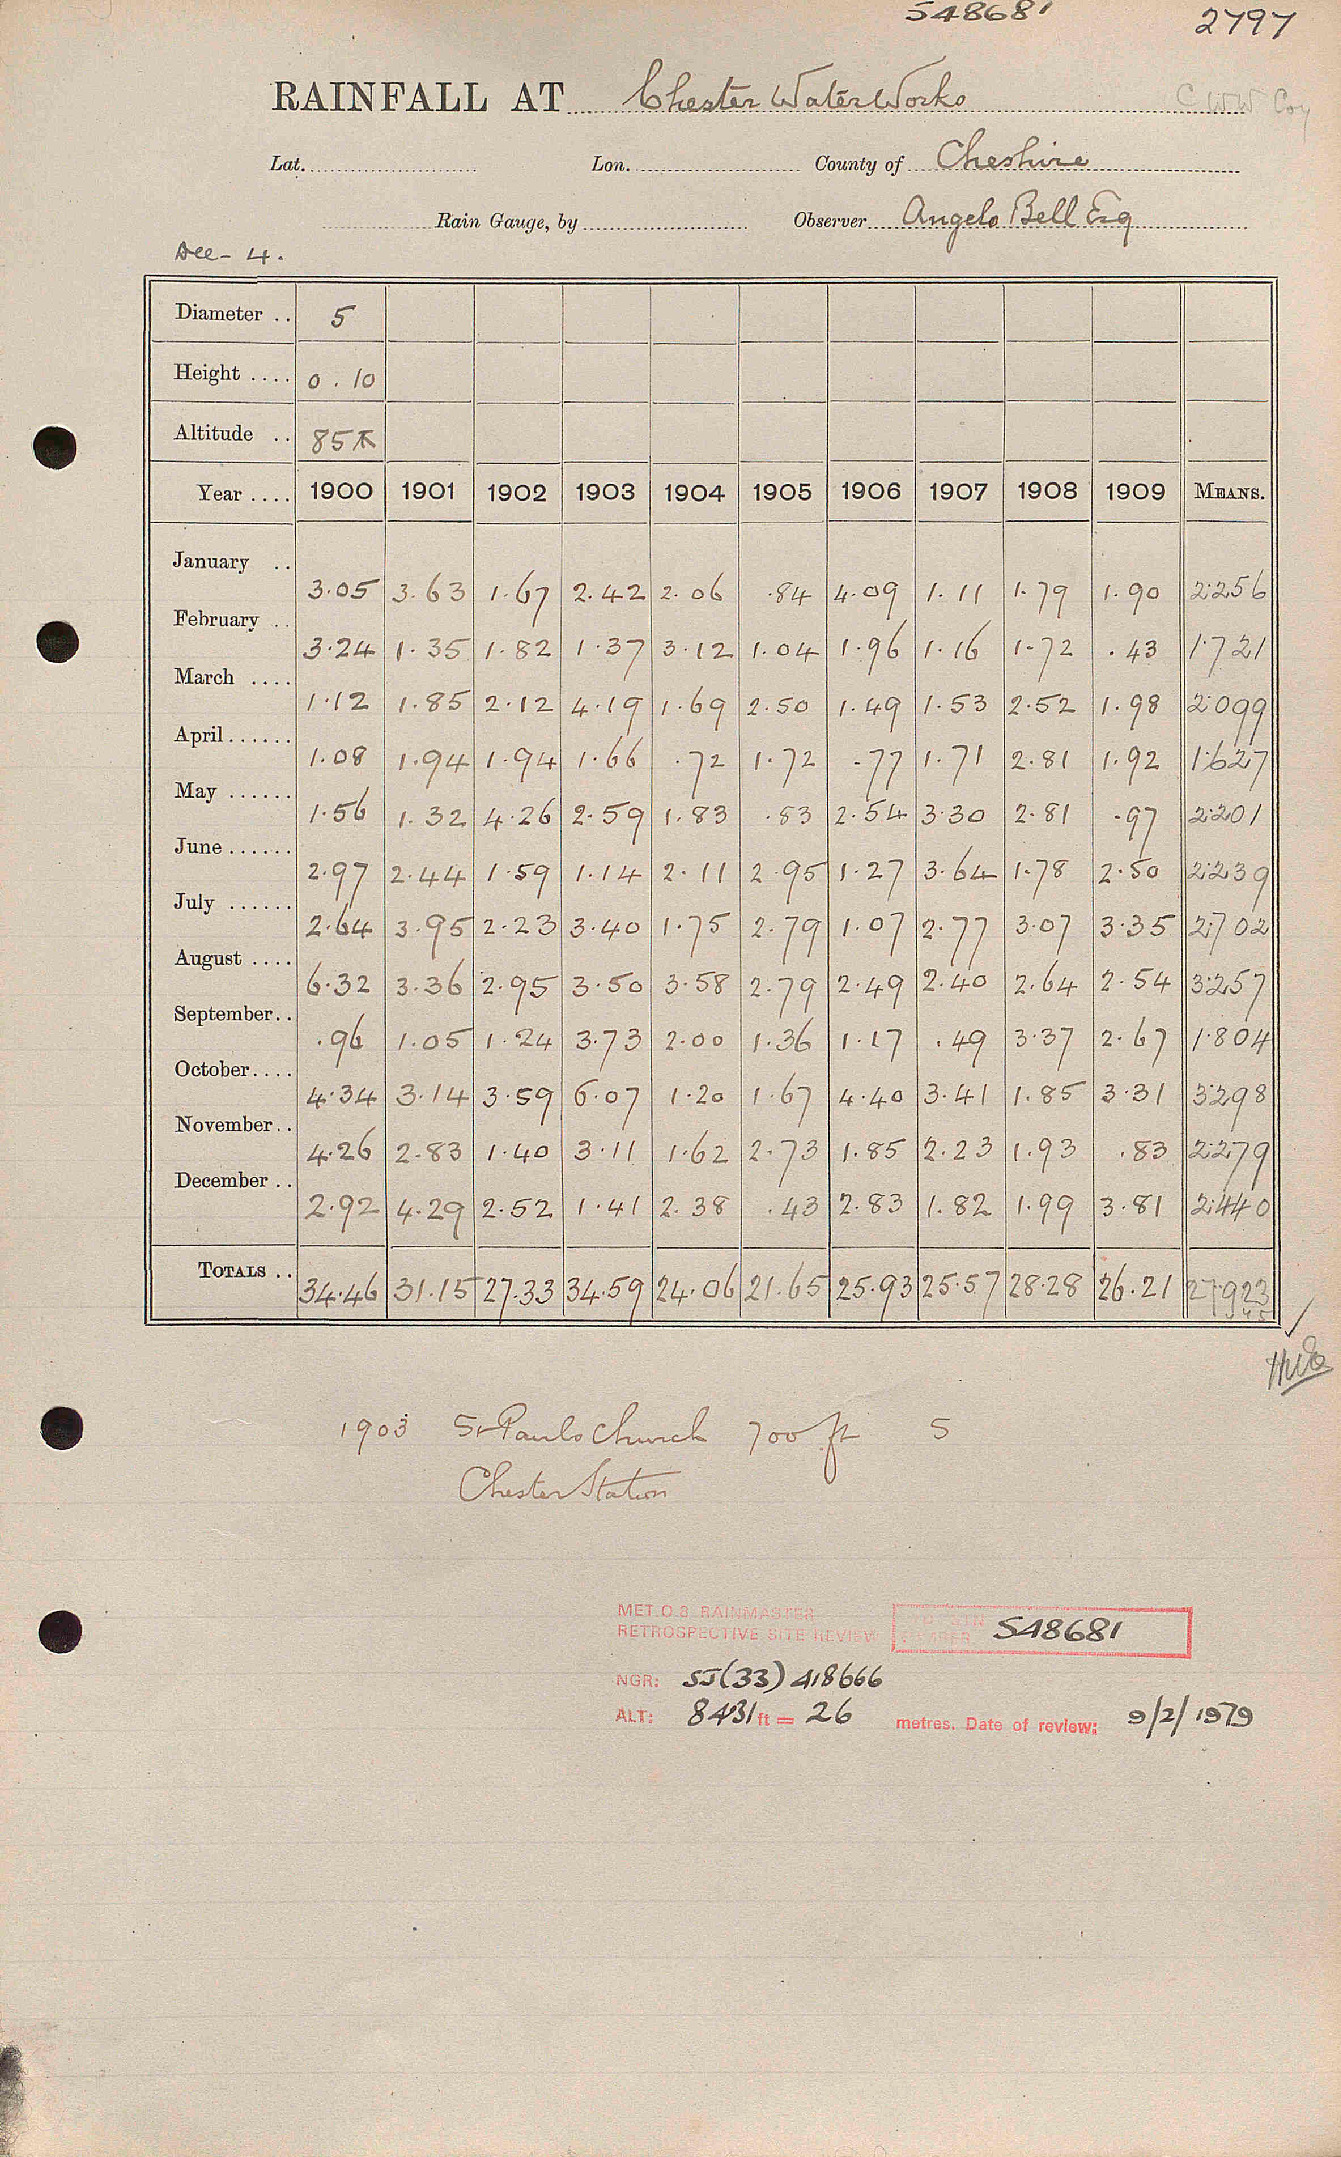 548681
2797
RAINFALL AT Chester WaterWorks C W W Coy
Lat. Lon. County of Cheshire
Rain Gauge, by Observer Angelo Bell Esq
Dec - 4.
Diameter .. 5
Height .... 0 . 10
Altitude .. 85
Year .... 1900 1901 1902 1903 1904 1905 1906 1907 1908 1909 MEANS.
January .. 3.05 3.63 1.67 2.42 2.06 .84 4.09 1.11 1.79 1.90 2.256
February .. 3.24 1.35 1.82 1.37 3.12 1.04 1.96 1.16 1.72 .43 1.721
March .... 1.12 1.85 2.12 4.19 1.69 2.50 1.49 1.53 2.52 1.98 2.099
April...... 1.08 1.94 1.94 1.66 .72 1.72 .77 1.71 2.81 1.92 1.627
May ...... 1.56 1.32 4.26 2.59 1.83 .83 2.54 3.30 2.81 .97 2.201
June...... 2.97 2.44 1.59 1.14 2.11 2.95 1.27 3.64 1.78 2.50 2.239
July ...... 2.64 3.95 2.23 3.40 1.75 2.79 1.07 2.77 3.07 3.35 2.702
August .... 6.32 3.36 2.95 3.50 3.58 2.79 2.49 2.40 2.64 2.54 3.257
September.. .96 1.05 1.24 3.73 2.00 1.36 1.17 .49 3.37 2.67 1.804
October.... 4.34 3.14 3.59 6.07 1.20 1.67 4.40 3.41 1.85 3.31 3.298
November.. 4.26 2.83 1.40 3.11 1.62 2.73 1.85 2.23 1.93 .83 2.279
December .. 2.92 4.29 2.52 1.41 2.38 .43 2.83 1.82 1.99 3.81 2.440
TOTALS .. 34.46 31.15 27.33 34.59 24.06 21.65 25.93 25.57 28.28 26.21 27.923
1903 St Pauls Church 700 ft 5
Chester Station
MET.O.8 RAINMASTER
RETROSPECTIVE SITE REVIEW NUMBER 548681
NGR: SJ(33) 418666
ALT: ft = 26 metres. Date of review: 9/2/1979